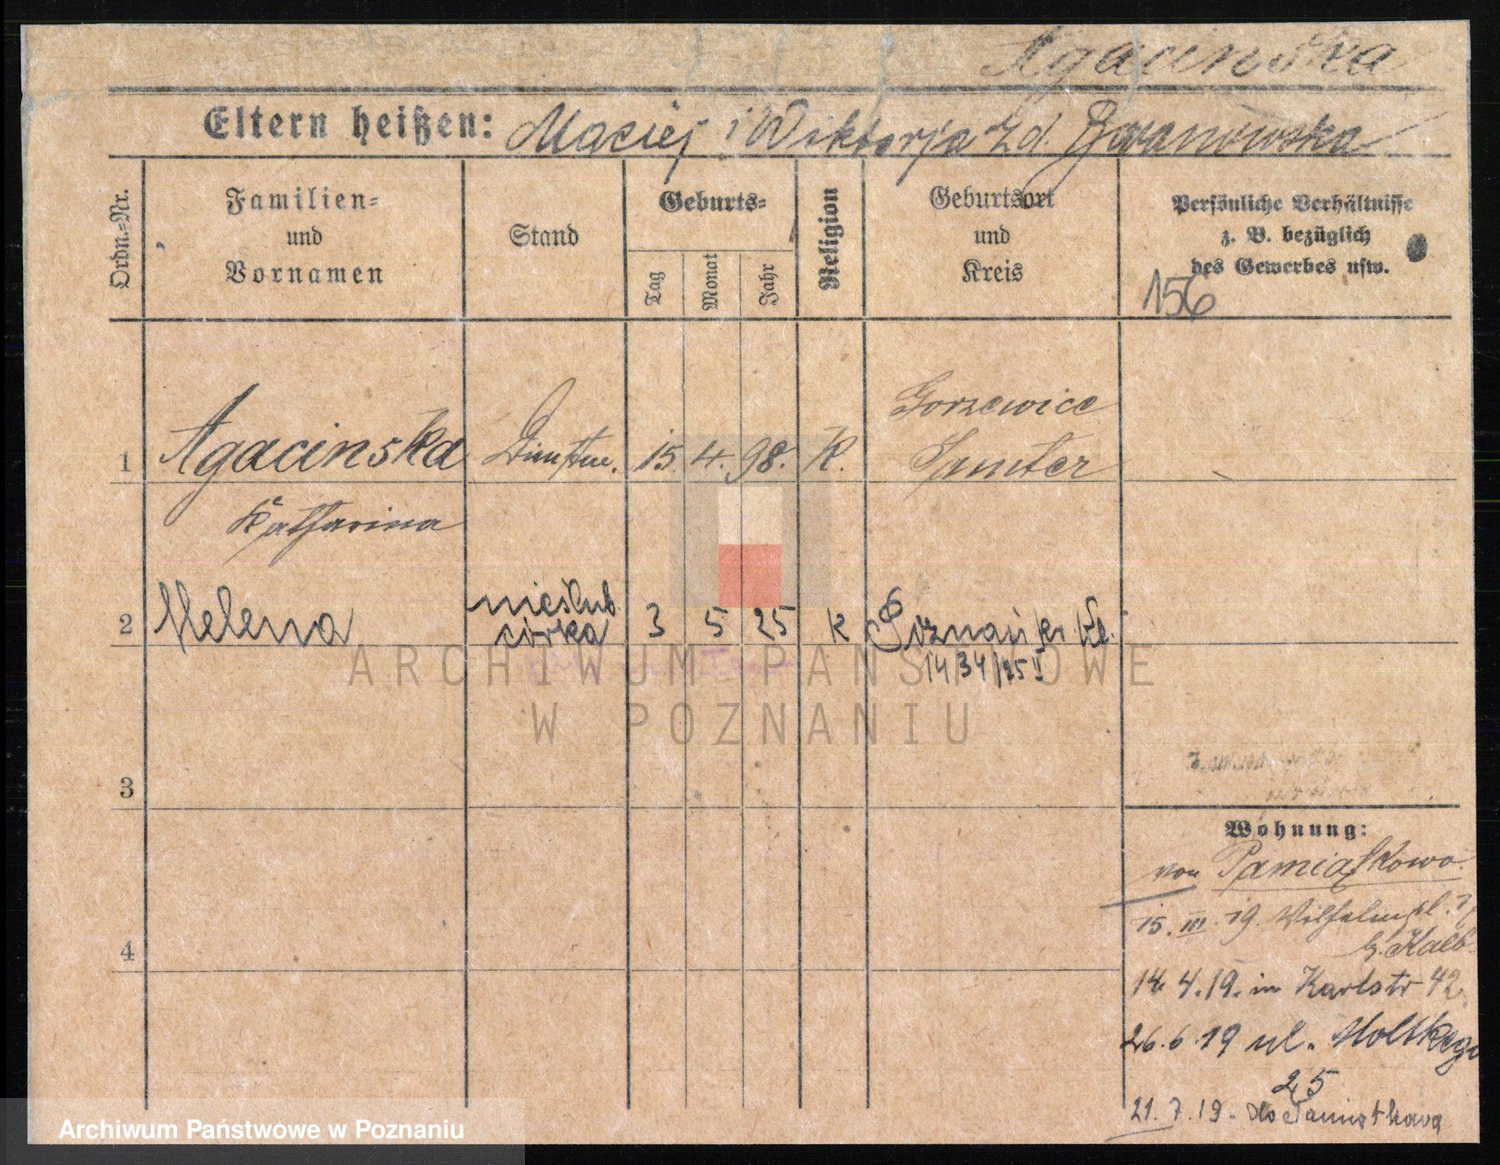 Agacinska
Eltern heißen: Maciej i Wiktorja z d.
Ordn.-Nr.
Familien-
und
Vornamen
Stand
Geburts-
Tag
Monat
Jahr
Religion
Geburtsort
und
Kreis
Persönliche Verhältnisse
z. B. bezüglich
des Gewerbes usw.
156
1 Agacinska 15. 4. 98. K. Gorzewice
Samter
Katharina
2 Helena nieślub. 3 5 25 k Poznań
córka
1434/25 II
ARCHIWUM PAŃSTWOWE
W POZNANIU
3
4
Wohnung:
von Pamiątkowo
15. III. 19. Wilhelmspl.
b. Kalb
14. 4. 19. in Karlstr 42
26. 6. 19 ul. Moltkego
25
21. 7. 19. do
Archiwum Państwowe w Poznaniu